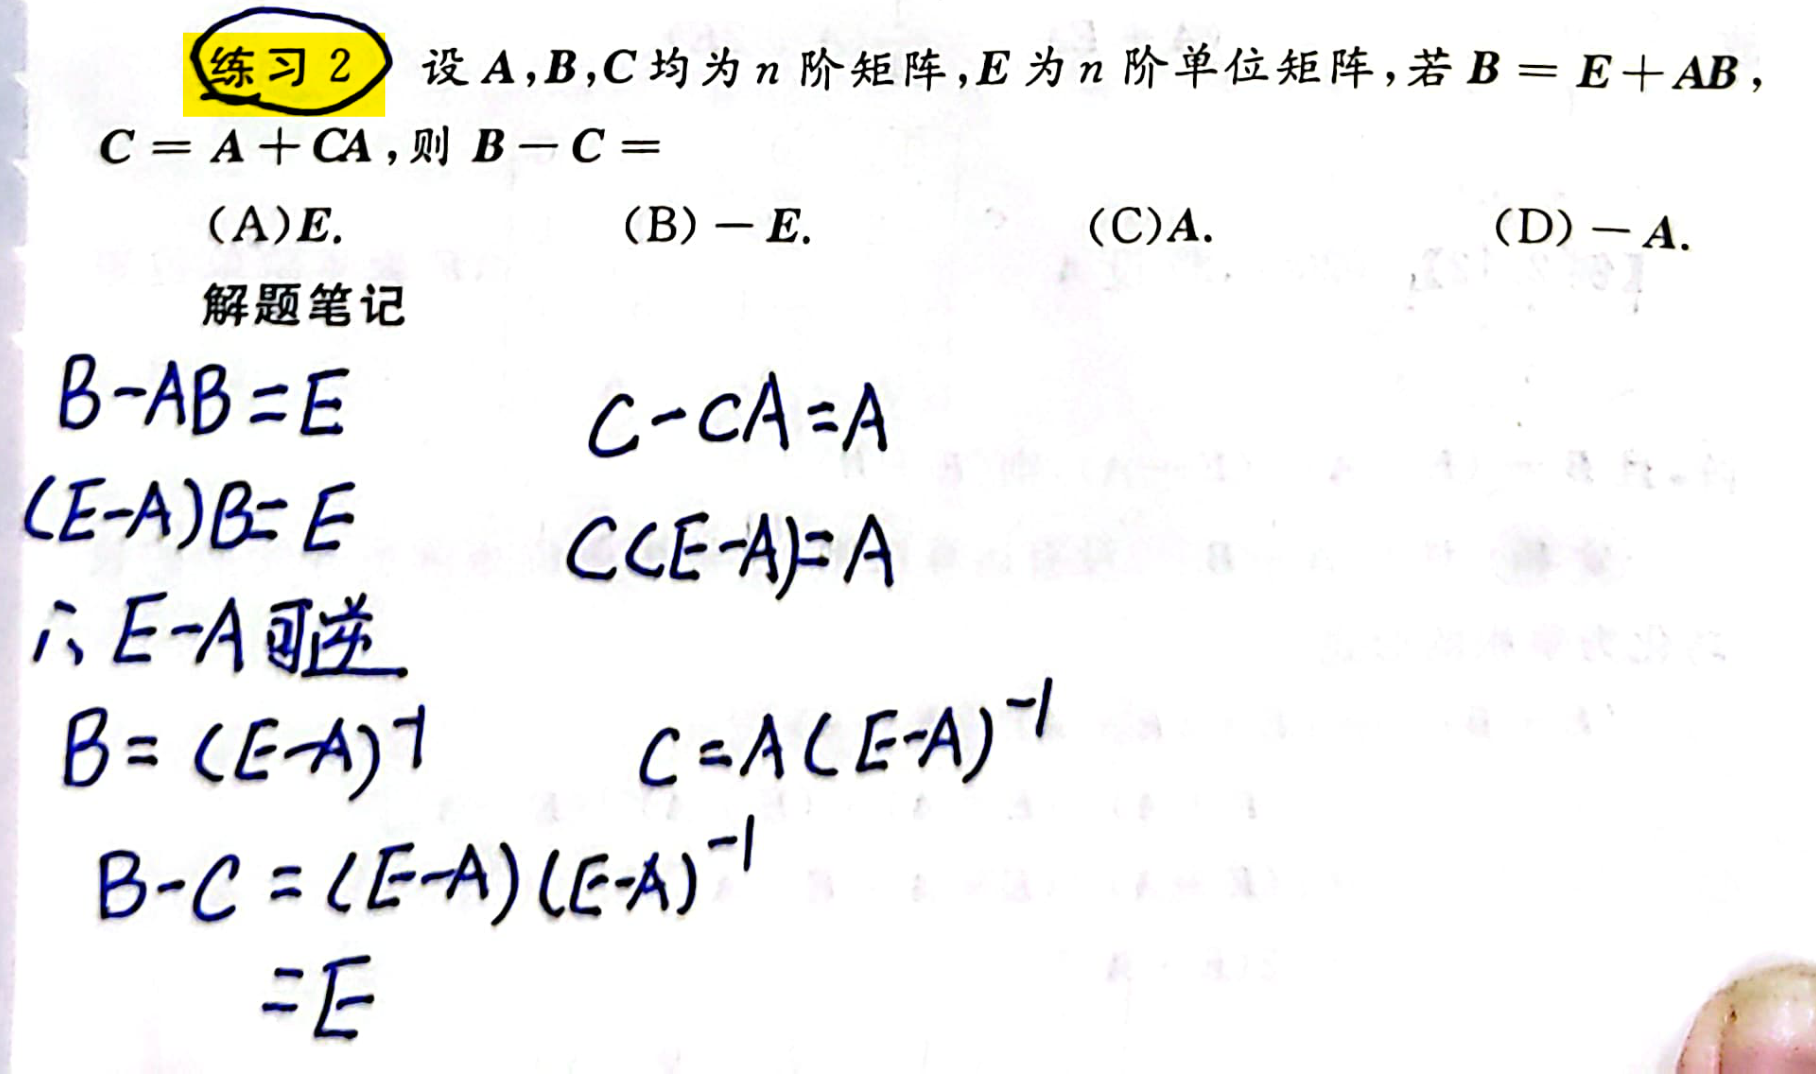 练习 2 设 A,B,C 均为 n 阶矩阵,E 为 n 阶单位矩阵,若 B = E + AB,
C = A + CA,则 B - C =
(A)E. (B) - E. (C)A. (D) - A.
解题笔记
B-AB=E C-CA=A
(E-A)B=E C(E-A)=A
∴ E-A可逆
B=(E-A)⁻¹ C=A(E-A)⁻¹
B-C=(E-A)(E-A)⁻¹
=E